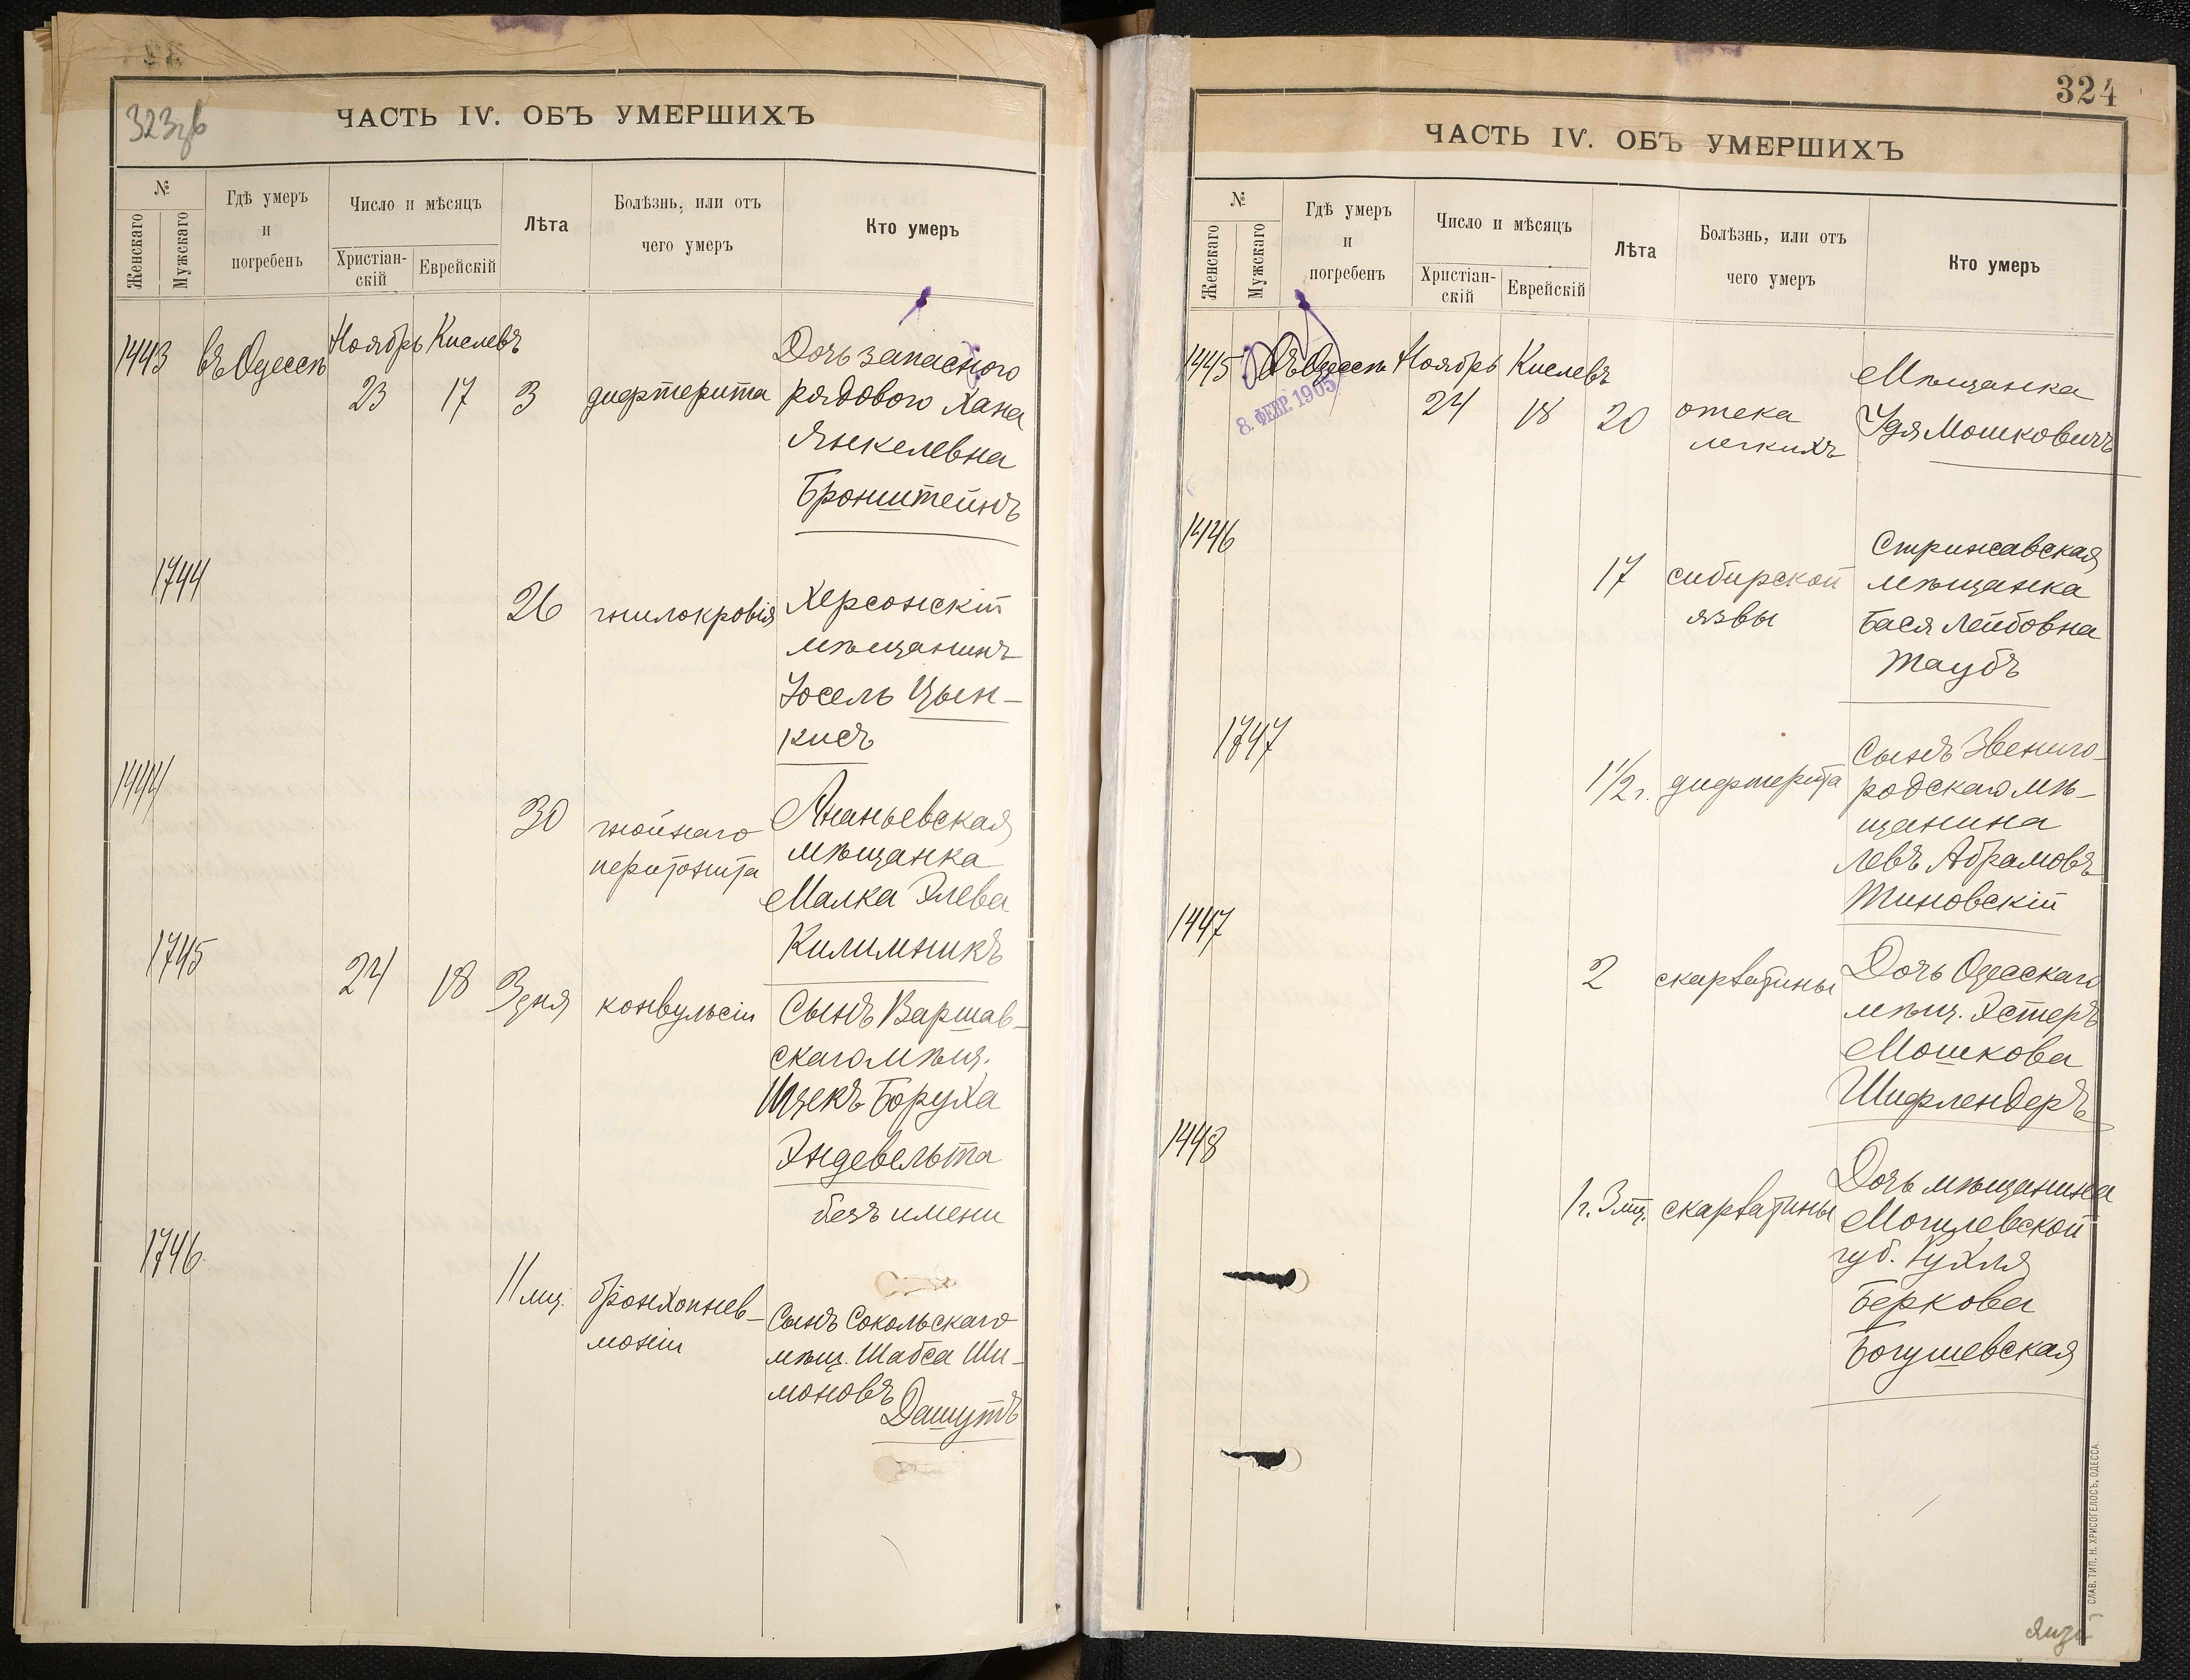 323зв
ЧАСТЬ IV. ОБЪ УМЕРШИХЪ
№
Женскаго
Мужскаго
Гдѣ умеръ
и
погребенъ
Число и мѣсяцъ
Христіан-
скій
Еврейскій
Лѣта
Болѣзнь, или отъ
чего умеръ
Кто умеръ
1443 въ Одессѣ Ноябрь Кислевъ Дочь запасного
23 17 3 дифтерита рядового Хана
Янкелевна
Бронштейнъ
1744
26 гнилокровія Херсонскій
мѣщанинъ
Іосель Цын-
кисъ
1444
30 гнойнаго Ананьевская
перитонита мѣщанка
Малка Элева
Килимникъ
1745
24 18 3 дня конвульсіи Сынъ Варшав-
скаго мѣщ.
Ицекъ Боруха
Эндевельта
безъ имени
1746
11 мц. бронхопнев- Сынъ Сокольскаго
моніи мѣщ. Шабса Ши-
моновъ
Дашутъ
324
ЧАСТЬ IV. ОБЪ УМЕРШИХЪ
№
Женскаго
Мужскаго
Гдѣ умеръ
и
погребенъ
Число и мѣсяцъ
Христіан-
скій
Еврейскій
Лѣта
Болѣзнь, или отъ
чего умеръ
Кто умеръ
1445 Въ Одессѣ Ноябрь Кислевъ Мѣщанка
8. ФЕВ. 1905
24 18 20 отека Удя Мошковичъ
легкихъ
1446
Стрижавская
17 сибирской мѣщанка
язвы Бася Лейбовна
Таубъ
1747
Сынъ Звениго-
1 1/2 г. дифтерита родскаго мѣ-
щанина
Левъ Абрамовъ
Тиновскій
1447
2 скарлатины Дочь Одесскаго
мѣщ. Эстеръ
Мошкова
Шифлендеръ
1448
Дочь мѣщанина
1 г. 3 мц. скарлатины Могилевской
губ. Рухля
Беркова
Богушевская
СЛАВ. ТИП. Н. ХРИСОГЕЛОСЪ, ОДЕССА.